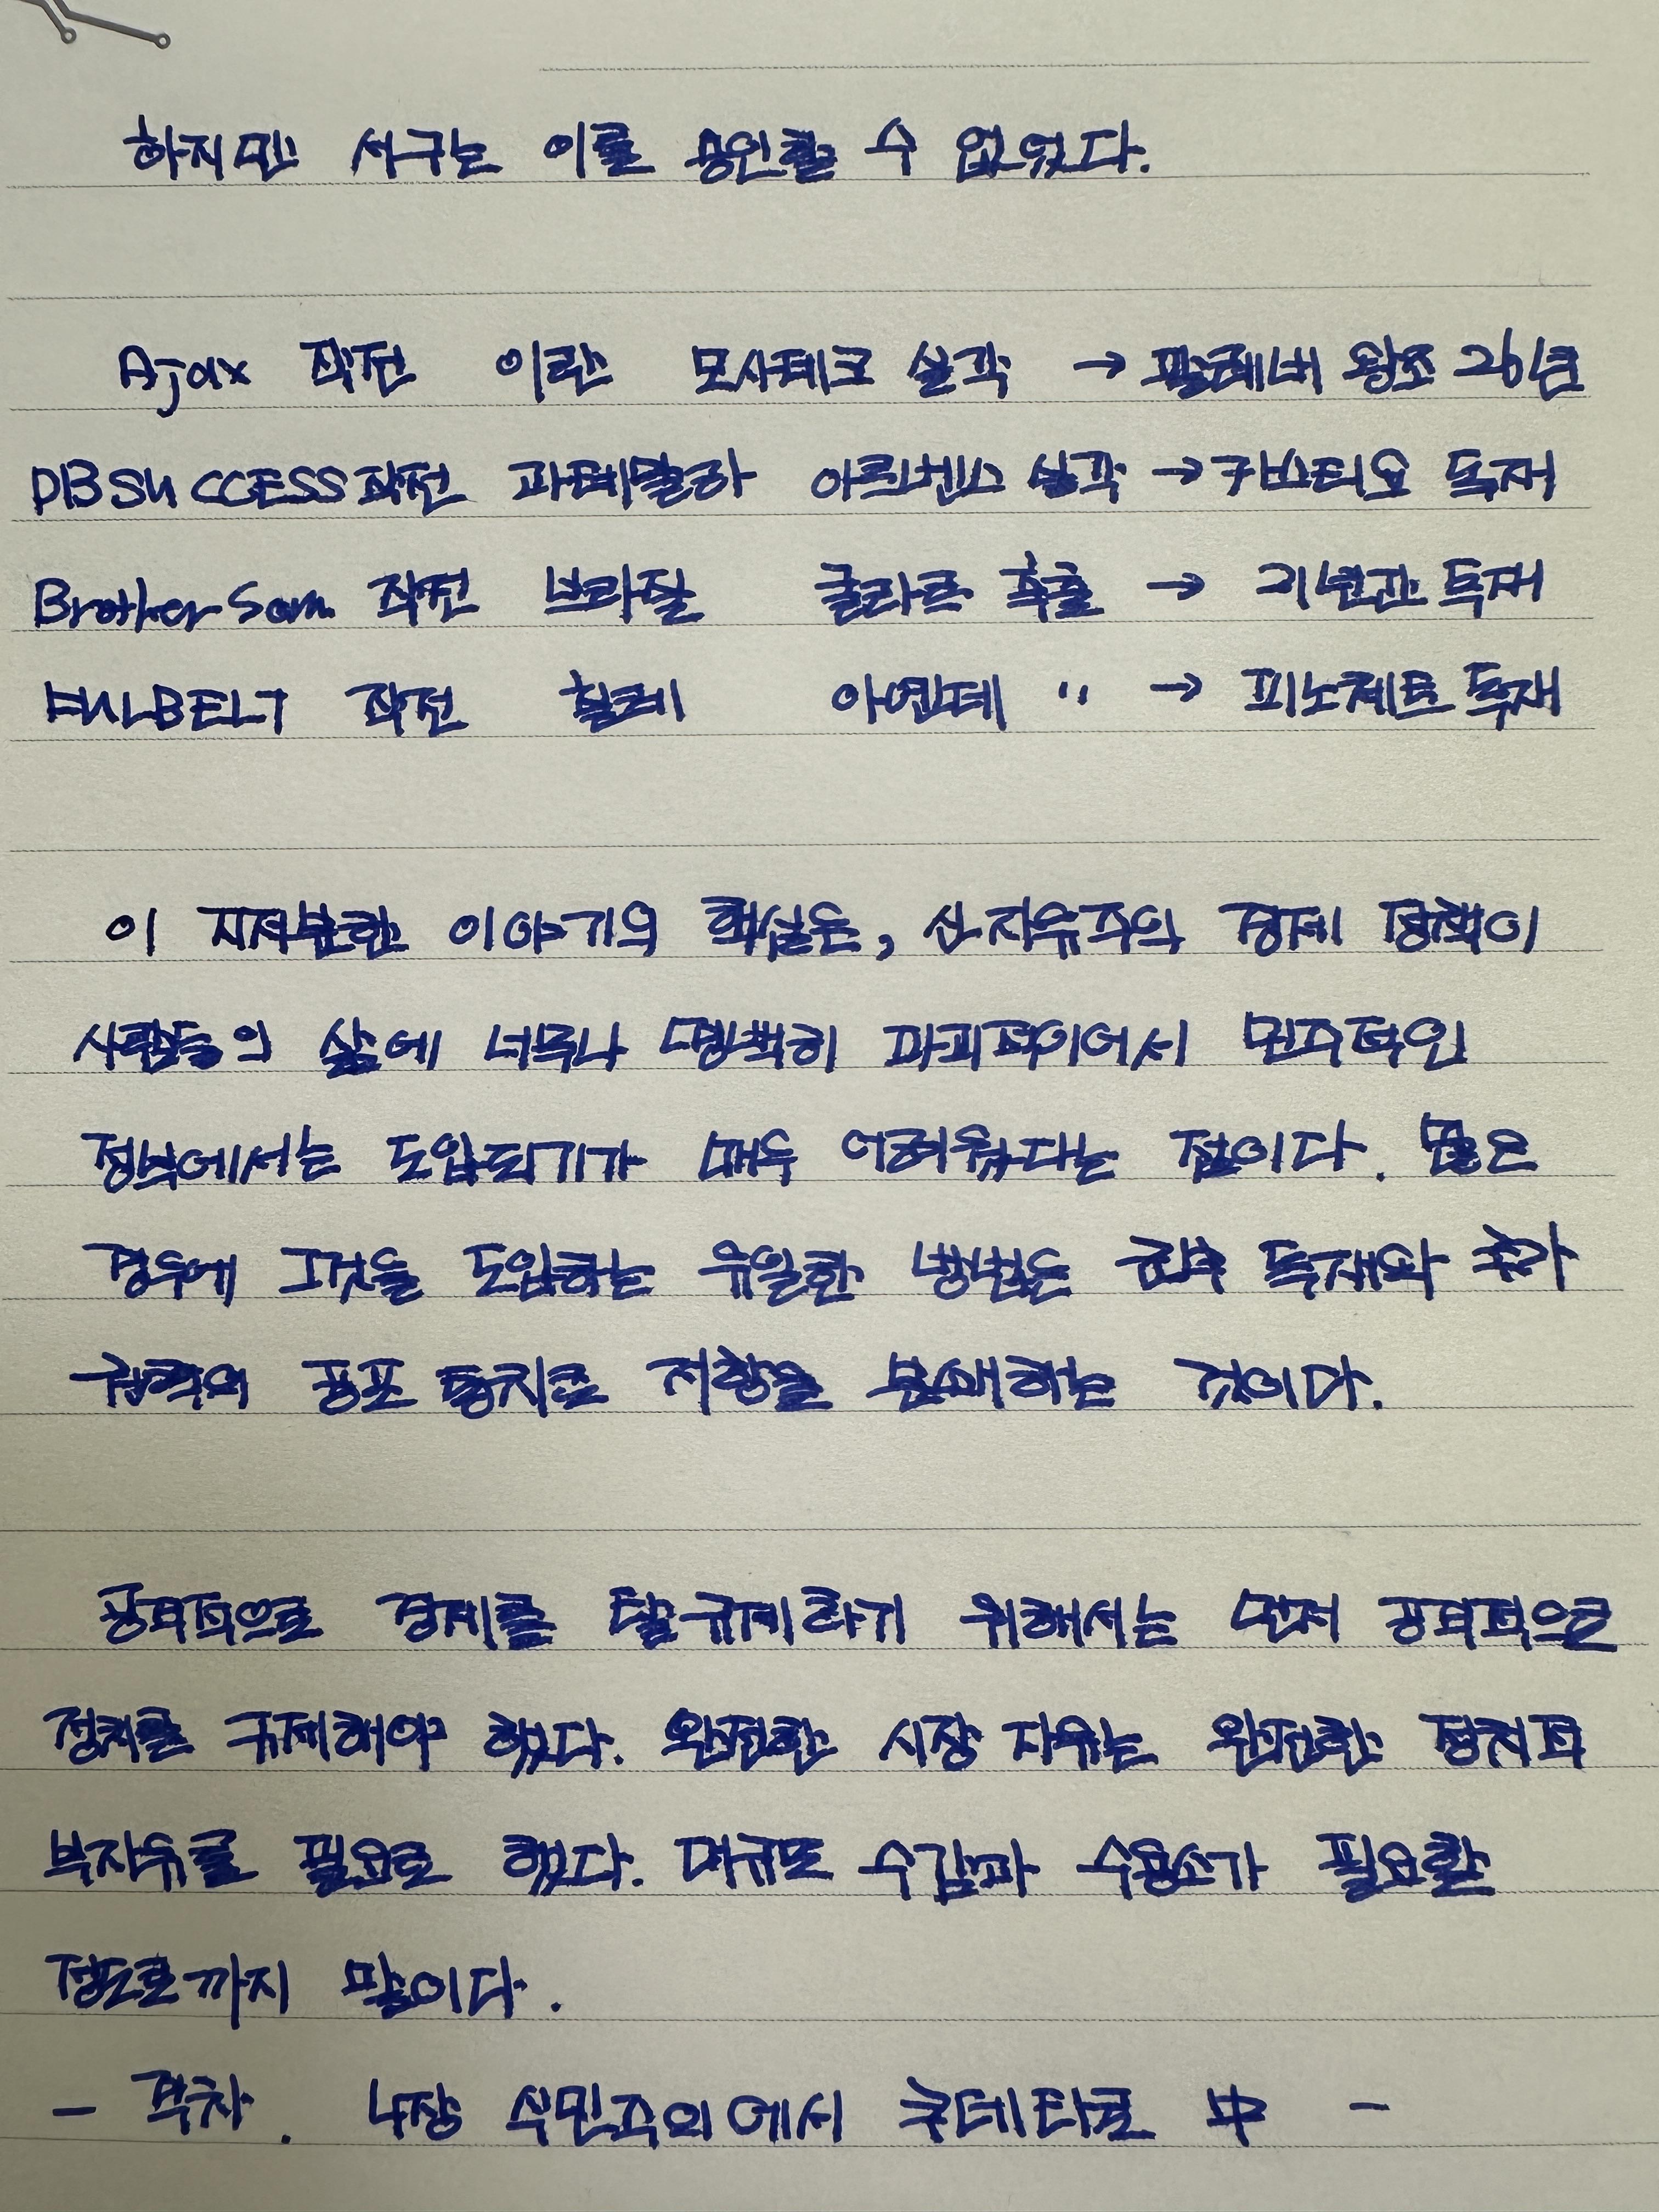 하지만 서구는 이를 용인할 수 없었다.
Ajax 작전 이란 모사데크 실각 → 팔레비 왕조 26년
PBSUCCESS 작전 과테말라 아르벤스 실각 → 카스티요 독재
Brother Sam 작전 브라질 굴라르 축출 → 21년간 독재
FUBELT 작전 칠레 아옌데 〃 → 피노체트 독재
이 지저분한 이야기의 핵심은, 신자유주의 경제 정책이
사람들의 삶에 너무나 명백히 파괴적이어서 민주적인
정부에서는 도입되기가 매우 어려웠다는 점이다. 많은
경우에 그것을 도입하는 유일한 방법은 군부 독재와 국가
권력의 공포 통치로 저항을 분쇄하는 것이다.
공격적으로 경제를 탈규제하기 위해서는 먼저 공격적으로
정치를 규제해야 했다. 완전한 시장 자유는 완전한 정치적
부자유를 필요로 했다. 대규모 수감과 수용소가 필요할
정도로까지 말이다.
- 격차. 4장 식민주의에서 쿠데타로 中 -